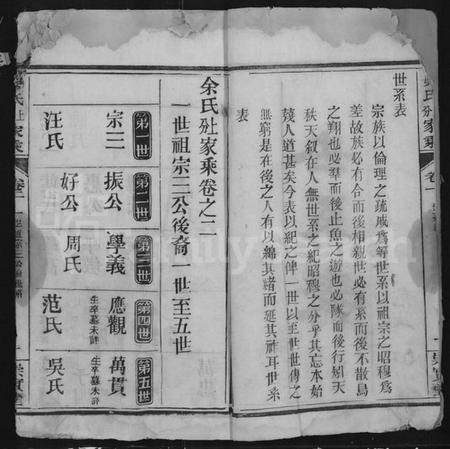 世系表
宗族以倫理之疏戚為等世系以祖宗之昭穆為
差故族必有合而後相親世必有系而後不散鳥
之翔也必羣而後止魚之遊也必隊而後行矧天
秩天叙在人無世系之紀昭穆之分乎其忘本始
殘人道甚矣今表以紀之俾一世以至世世傳之
無窮是在後之人有以緜其緒而延其祚耳世系
表
余氏㘰家乘卷之二
一世祖宗三公後裔一世至五世
第一世
宗三
汪氏
第二世
振公
好公
第三世
學義
周氏
第四世
應觀
生卒墓未詳
范氏
第五世
萬貫
生卒墓未詳
吳氏
家乘
卷二
氏
家乘
卷一